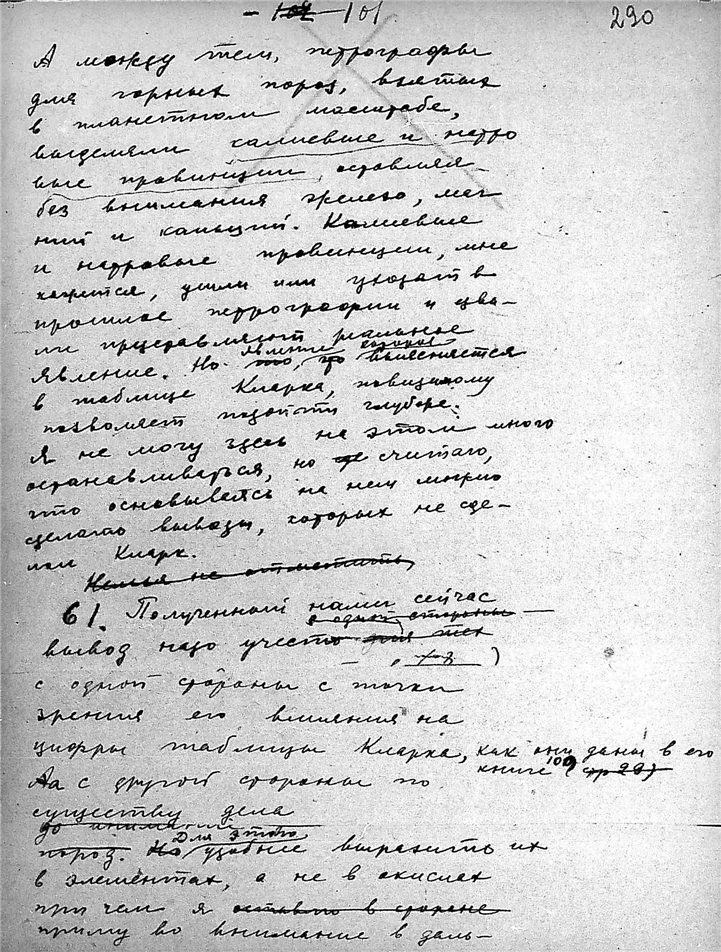 - 102 - 101
290
А между тем, петрографы
для горных пород, взятых
в планетном масштабе,
выделяли калиевые и натро
вые провинции, оставляя
без внимания железо, маг
ний и кальций. Калиевые
и натровые провинции, мне
кажется, ушли или уходят в
прошлое петрографии и едва-
ли представляют реальное
явление которое
явление. Но то, что выясняется
в таблице Кларка, повидимому
позволяет подойти глубже.
Я не могу здесь на этом много
останавливаться, но я считаю,
что основываясь на ней можно
сделать выводы, которых не сде-
лал Кларк.
Нельзя не отметить
61. Полученный нами сейчас
с одной стороны
вывод надо учесть для тех
с одной стороны с точки
зрения его влияния на
цифры таблицы Кларка, как они даны в его
книге 109 (стр 29)
А с другой стороны по
существу дела
до
пород. Но Для этого удобнее выразить их
в элементах, а не в окислах
при чем я оставлю в стороне
приму во внимание в даль-